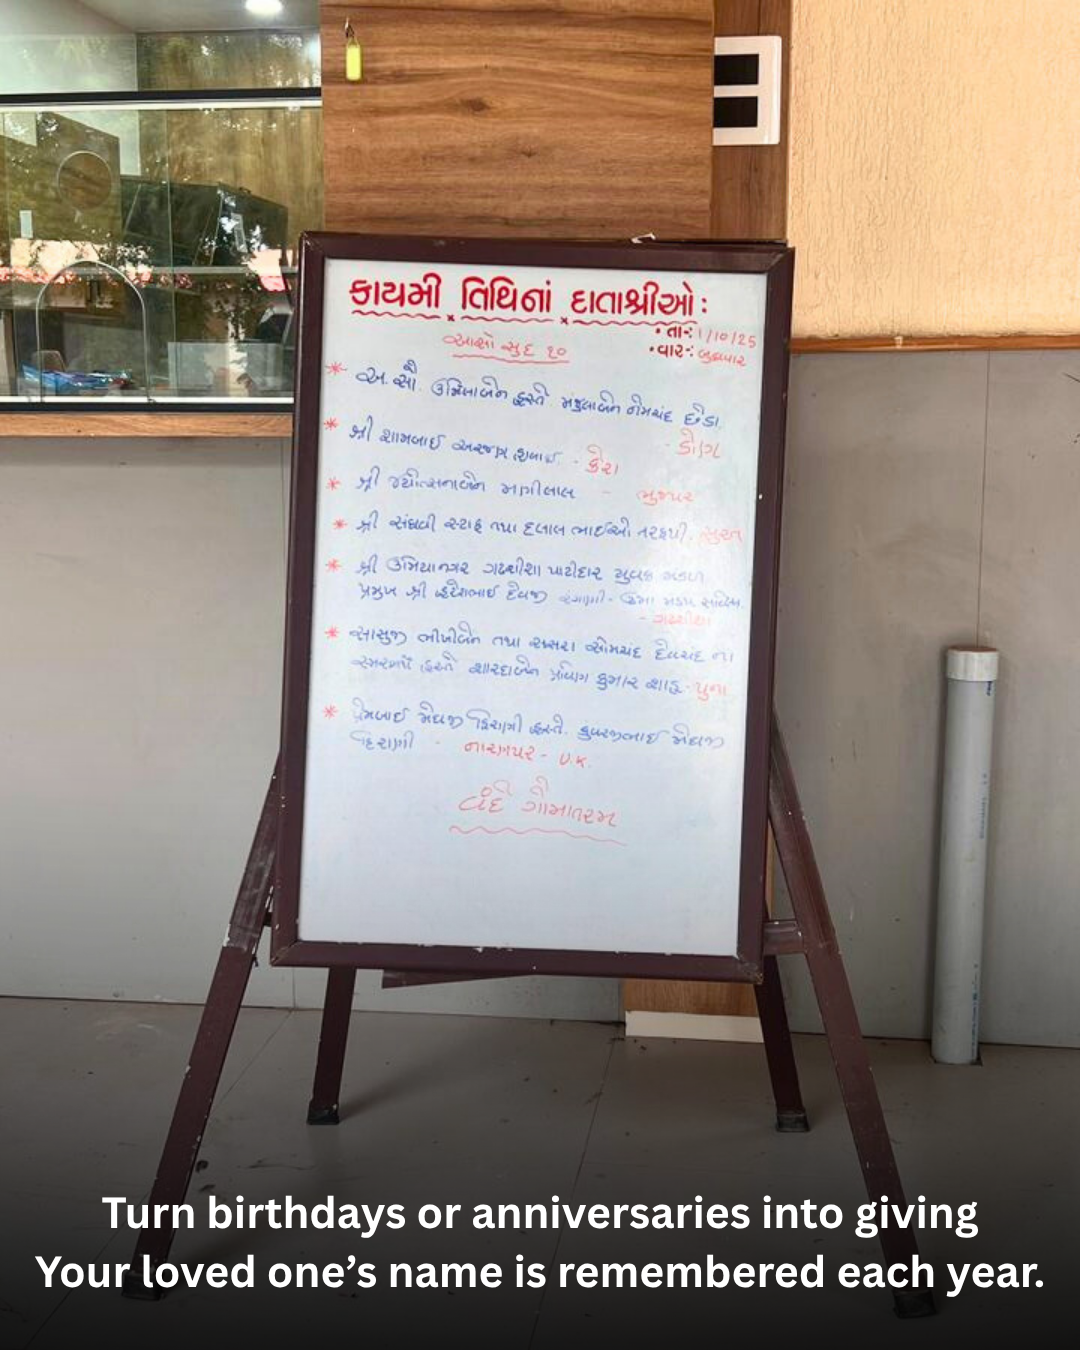 કાયમી તિથિનાં દાતાશ્રીઓ:
• તા-: 1/10/25
આસો સુદ ૧૦
• વાર-: બુધવાર
* અ.સૌ. ઉર્મિલાબેન હસ્તે. મંજુલાબેન નેમચંદ છેડા
- ડોણ
* શ્રી શામબાઈ અરજણ - કેરા
* શ્રી જ્યોત્સનાબેન મણીલાલ - ભુજપર
* શ્રી સંઘવી સ્ટાફ તથા દલાલ ભાઈઓ તરફથી. સુરત
* શ્રી ઉમિયાનગર ગઢશીશા પાટીદાર યુવક મંડળ
પ્રમુખ શ્રી દેવજી રંગાણી - ઉમા મંડપ સર્વિસ.
- ગઢશીશા
* સાસુજી તથા સસરા સોમચંદ દેવચંદ ના
સ્મરણાર્થે હસ્તે શારદાબેન કુમાર શાહ - પુના
* પ્રેમબાઈ મેઘજી હિરાણી હસ્તે. કુંવરજીભાઈ મેઘજી
હિરાણી - નારાણપર - U.K.
વંદે ગૌમાતરમ
Turn birthdays or anniversaries into giving
Your loved one’s name is remembered each year.